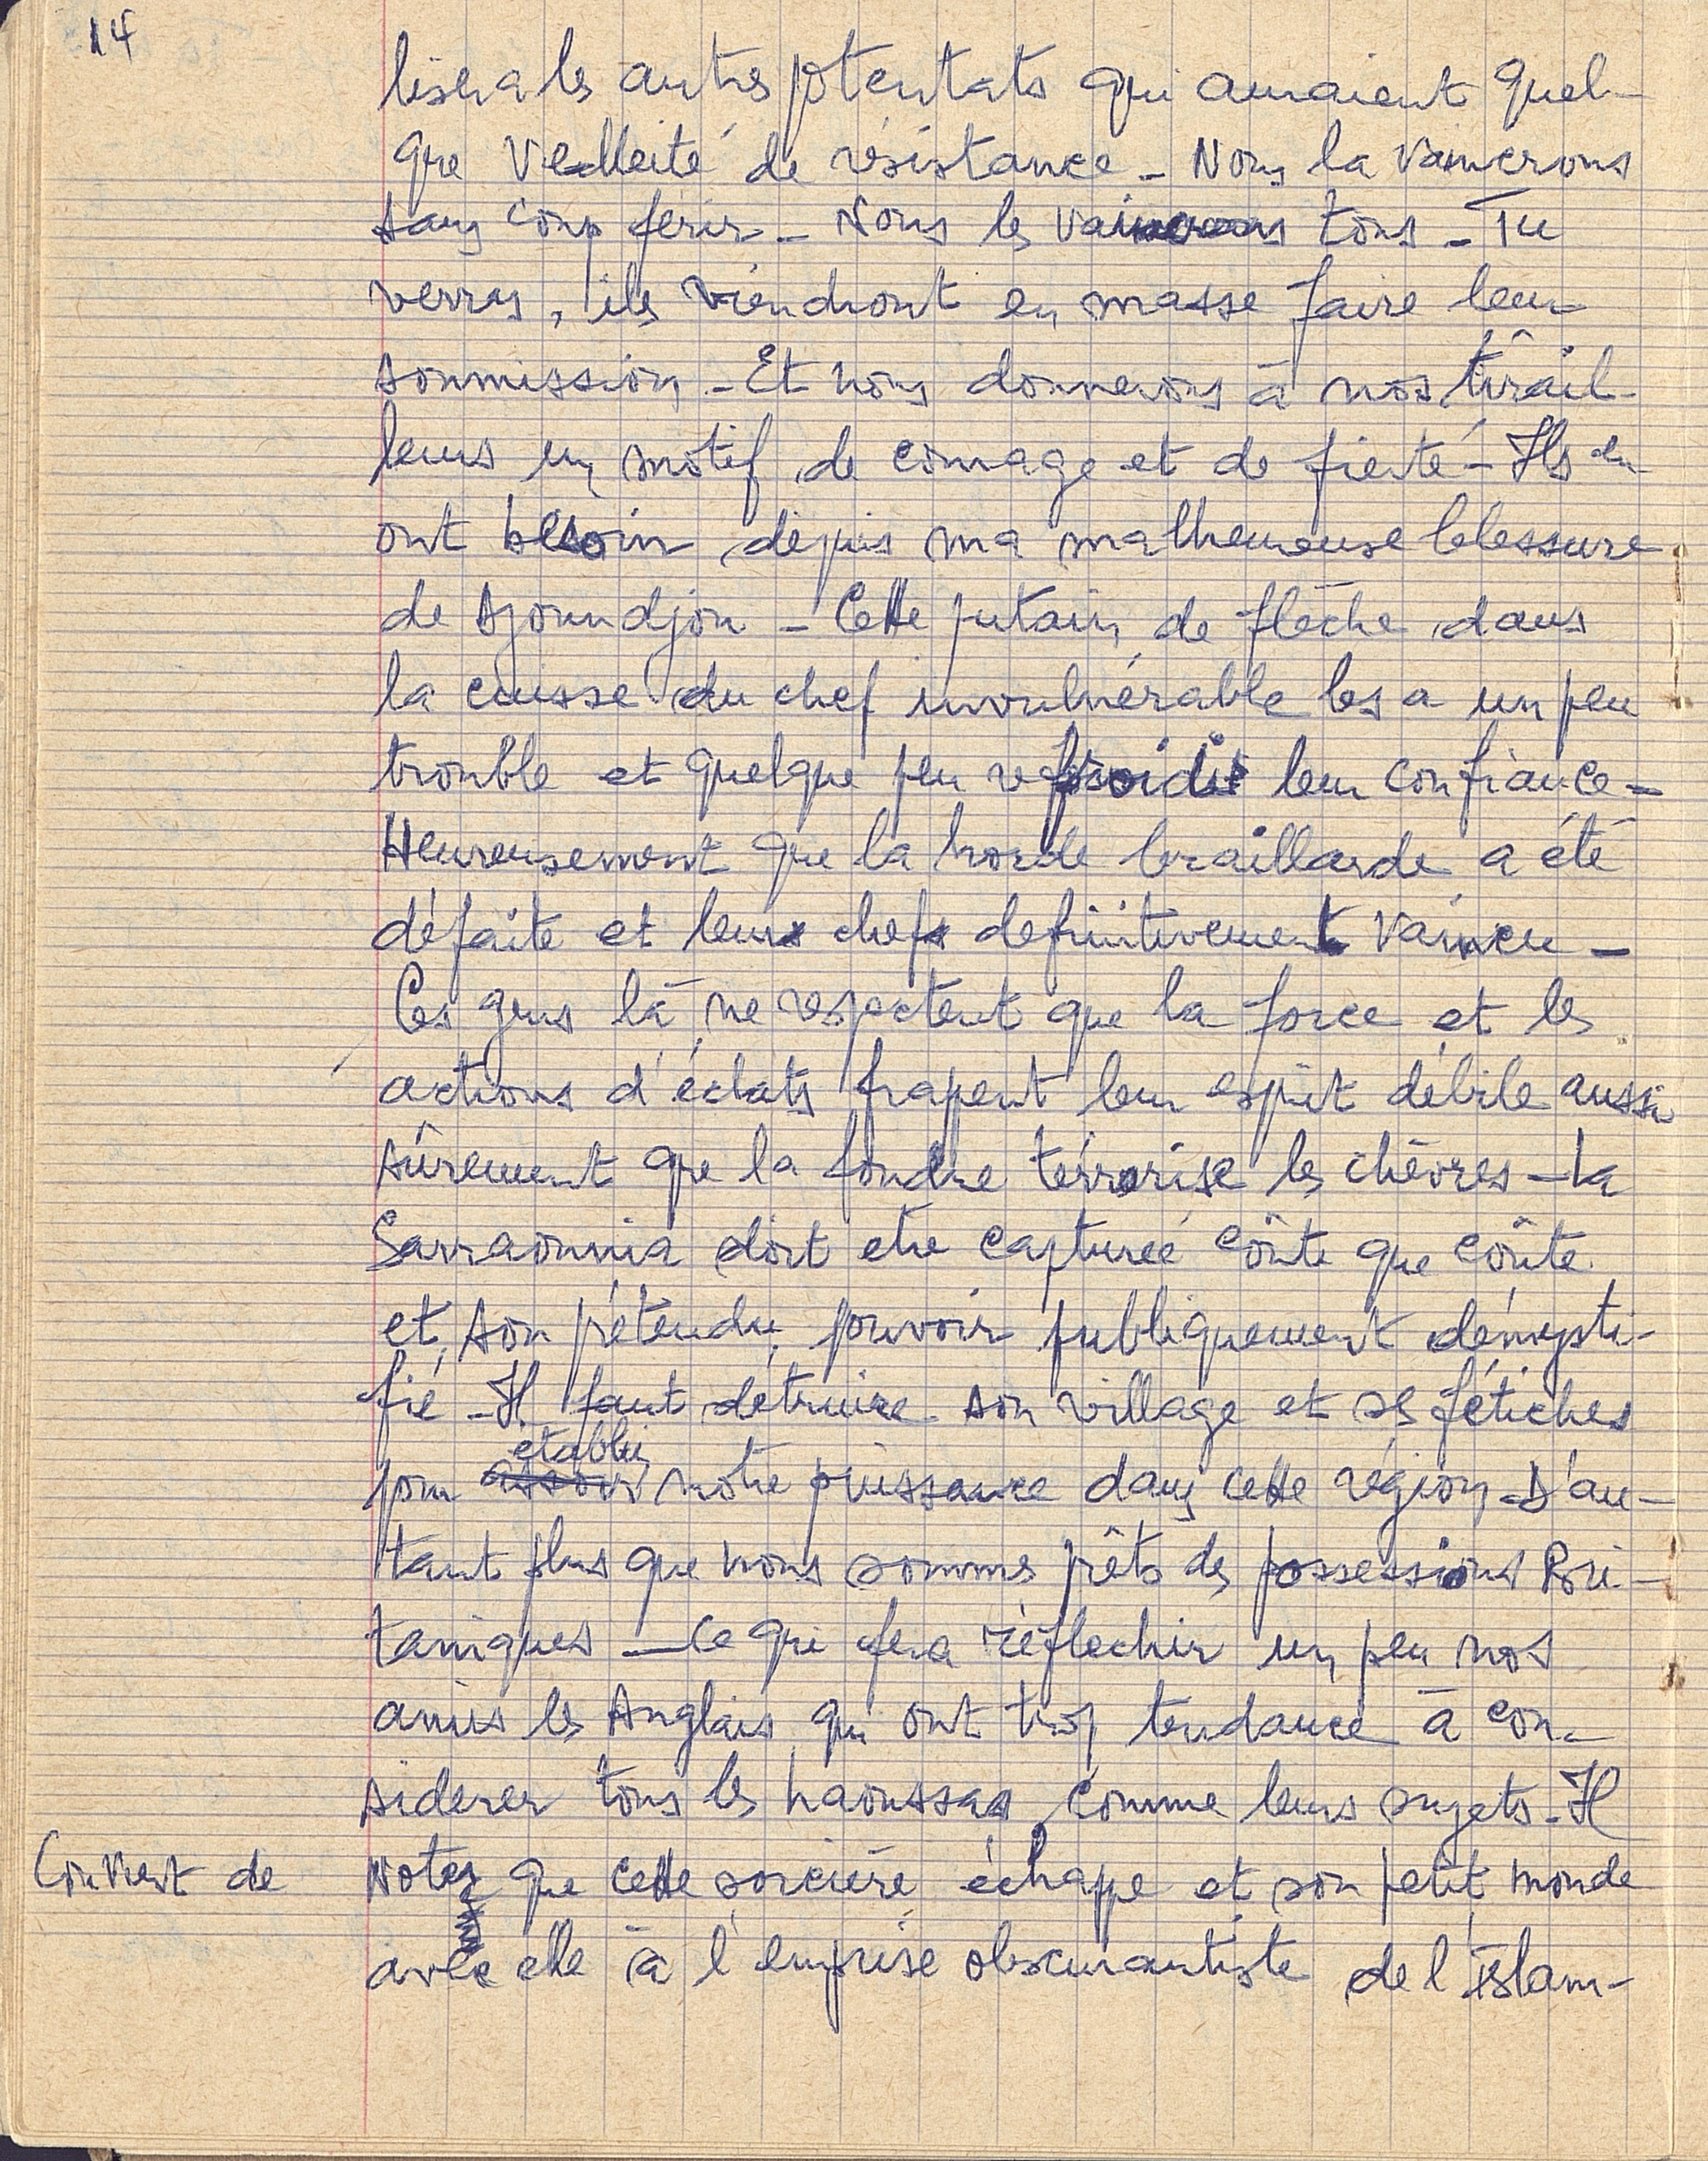 14
lisera les autres potentats qui auraient quel-
que Velleité de résistance - Nous la vaincrons
sans coup ferir - Nous les vaincrons tous - Tu
verras, ils viendront en masse faire leur
soumission - Et nous donnerons à nos tirail-
leurs un motif de courage et de fierté - Ils en
ont besoin depuis ma malheureuse blessure
de Djoundjou - Cette putain de flèche dans
la cuisse du chef invulnérable les a un peu
troublé et quelque peu refroidit leur confiance -
Heureusement que la horde braillarde a été
défaite et leur chef definitivement vaincu -
Ces gens là ne respectent que la force et les
actions d'éclats frapent leur esprit débile aussi
sûrement que la foudre terrorise les chèvres - La
Sarraounia doit etre capturée coûte que coûte
et son prétendu pouvoir publiquement démysti-
fié - Il faut détruire son village et ses fétiches
établir
pour assoir notre puissance dans cette région - D'au-
tant plus que nous sommes prêts des possessions Bri-
taniques - Ce qui fera réflechir un peu nos
amis les Anglais qui ont trop tendance à con-
siderer tous les haoussas comme leurs sujets - Il
Convient de Noter que cette sorcière échappe et son petit monde
avec elle à l'emprise obscurantiste de l'Islam -